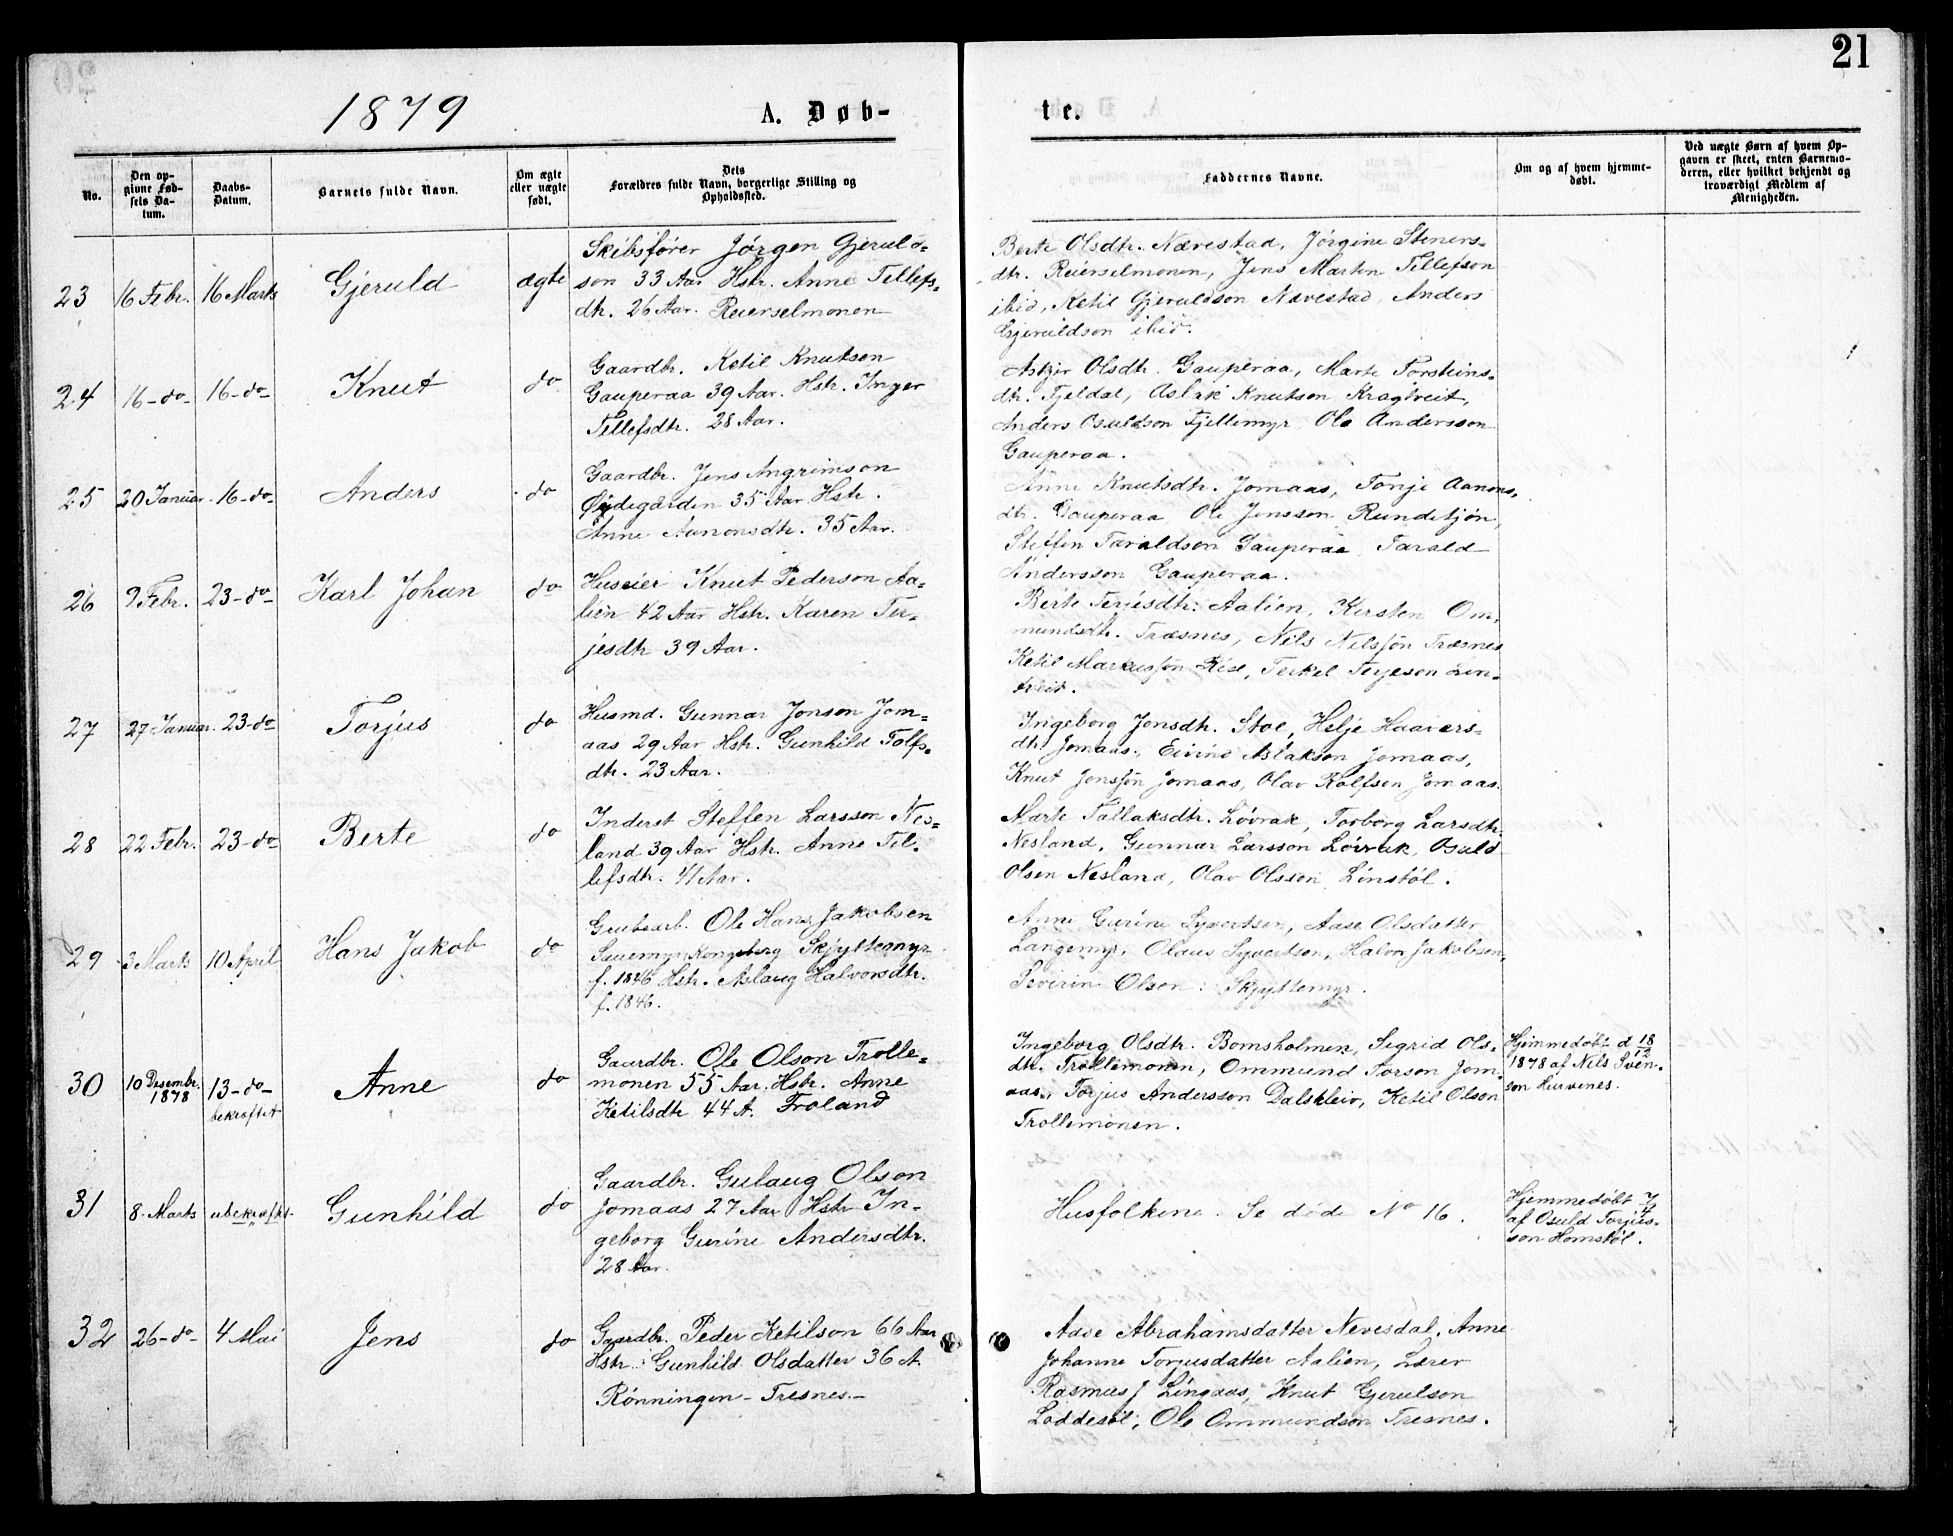 21
1879
A. Døb-
te.
No.
Den op-
givne Fød-
sels Da-
tum.
Daabs-
Datum.
Barnets fulde Navn.
Om ægte
eller uægte
født.
Dets
Forældres fulde Navn, borgerlige Stilling og
Opholdssted.
Faddernes Navne.
Om og af hvem hjemme-
døbt.
Ved uægte Børn af hvem Op-
gaven er skeet, enten Barnemo-
deren, eller hvilket bekjendt og
troværdigt Medlem af
Menigheden.
23 16 Febr. 16 Marts Gjeruld ægte
Skibsfører Jörgen Gjeruld-
son 33 Aar Hstr. Anne Tellefs-
dtr. 26 Aar. Reierselmonen
Berte Olsdtr. Nævestad, Jörgine Steners-
dtr. Reierselmonen, Jens Marton Tellefson
ibid, Ketil Gjeruldson Nævestad, Anders
Gjeruldson ibid.
24 16-do- 16-do- Knut do
Gaardbr. Ketil Knutson
Gauperaa 39 Aar. Hstr. Inger
Tellefsdtr. 28 Aar.
Askjer Olsdtr. Gauperaa, Marte Torsteins-
dtr. Fjeldal, Aslak Knutson Kragtveit,
Anders Osuldson Fjellemyr, Ole Andersson
Gauperaa.
25 20 Januar. 16-do- Anders do
Gaardbr. Jens Angrimson
Øydegarden 35 Aar Hstr.
Anne Aanonsdtr. 35 Aar.
Anne Knutsdtr. Jomaas, Tonje Aanons-
dtr. Gauperaa Ole Jensson Rundetjön,
Steffen Taraldson Gauperaa Tarald
Andersson Gauperaa.
26 9 Febr. 23-do- Karl Johan do
Huseier Knut Pederson Aa-
lien 42 Aar Hstr. Karen Ter-
jesdtr 39 Aar.
Berte Terjesdtr. Aalien, Kirsten Om-
mundsdtr. Træsnes, Nils Nilssön Træsnes
Ketil Markussön Rise, Terkel Terjeson Lin-
tveit.
27 27 Januar. 23-do Torjus do
Husmd. Gunnar Jonson Jom-
aas 29 Aar Hstr. Gunhild Tolfs-
dtr. 23 Aar.
Ingeborg Jonsdtr. Stoe, Helje Haavars-
dtr. Jomaas, Eivind Aslakson Jomaas,
Knut Jonssön Jomaas, Olav Rolfsen Jomaas.
28 22 Febr. 23-do Berte do
Inderst Steffen Larsson Nes-
land 39 Aar Hstr. Anne Tel-
lefsdtr. 41 Aar.
Marte Tallaksdtr. Lövrak, Torborg Larsdtr.
Nesland, Gunnar Larsson Lövrak, Osuld
Olsen Nesland, Olav Olsson Linstöl.
29 3 Marts 10 April Hans Jakob do
Grubearb. Ole Hans Jakobsen
Kongsberg Skjyttemyr
f. 1846 Hstr. Aslaug Halvorsdtr.
f. 1846.
Anne Gurine Syvertsen, Aase Olsdatter
Langemyr, Olaus Syvertsen, Halvor Jakobson,
Severin Olsen: Skjyttemyr.
30 10 Desembr. 1878 13-do- bekræftet Anne do
Gaardbr. Ole Olson Trolle-
monen 55 Aar. Hstr. Anne
Ketilsdtr 44 A. Froland
Ingeborg Olsdtr. Bomsholmen, Sigrid Ols-
dtr. Trollemonen, Ommund Torson Jom-
aas, Torjus Andersson Dalskleiv, Ketil Olson
Trollemonen.
Hjemmedöbt d 18/12
1878 af Nils Sven-
son Hurvenes.
31 8. Marts ubekræftet Gunhild do
Gaardbr. Gulaug Olson
Jomaas 27 Aar Hstr In-
geborg Gurine Andersdtr.
28 Aar.
Husfolkene. Se döde No 16.
Hjemmedöbt 7/4
af Osuld Torjus-
son Homstöl.
32 26-do- 4 Mai Jens do
Gaardbr. Peder Ketilson 66 Aar
Hstr. Gunhild Olsdatter 36 A.
Rönningen - Tresnes.-
Aase Abrahamsdatter Nevesdal, Anne
Johanne Torjusdatter Aalien, Lærer
Rasmus J Lingaas, Knut Gjerulson
Loddesöl, Ole Ommundson Tresnes.